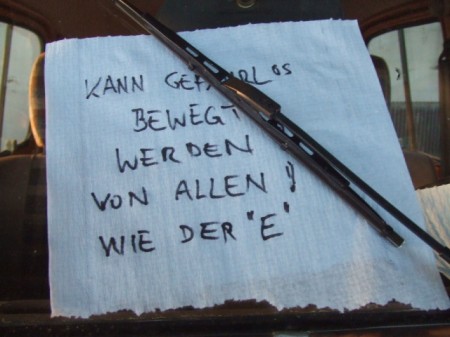 KANN GEFAHRLOS
BEWEGT
WERDEN
VON ALLEN !
WIE DER "E"